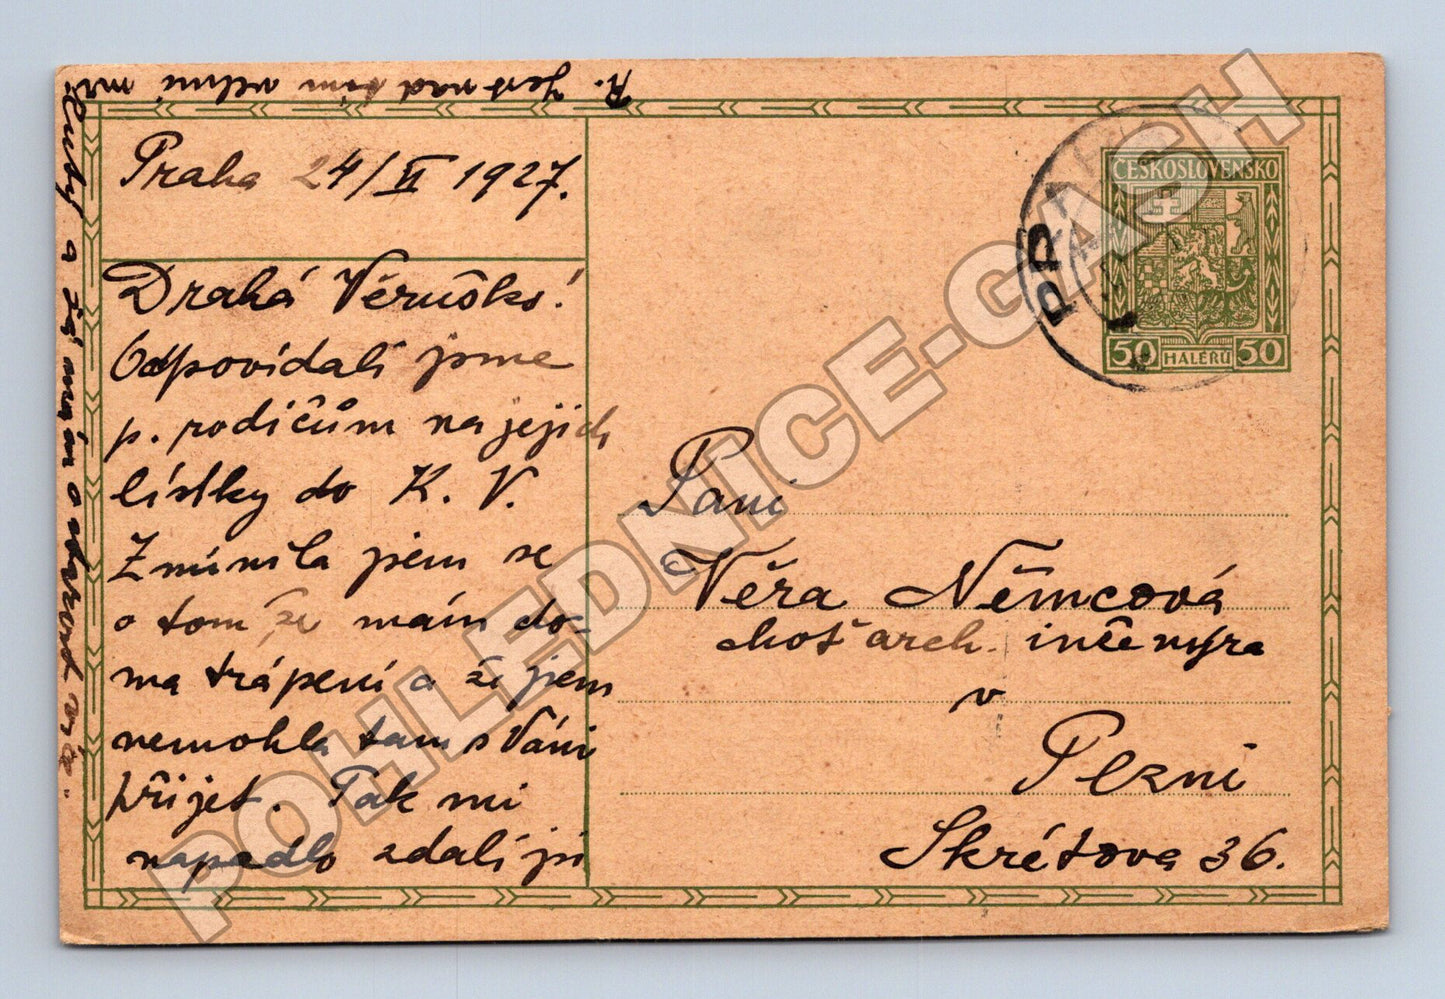 Praha 24/VI 1927.
Drahá Věruško!
Odpovídali jsme
p. rodičům na jejich
lístky do K. V.
Zmínila jsem se
o tom že mám do-
ma trápení a že jsem
nemohla tam s Vámi
přijet. Tak mi
napadlo zdali ji
R. jest nad tím velmi
a že mán o
ČESKOSLOVENSKO
50 HALÉŘŮ 50
PRAHA
Paní
Věra Němcová
choť arch. inženýra
v
Plzni
Skrétova 36.
POHLEDNICE-GASH